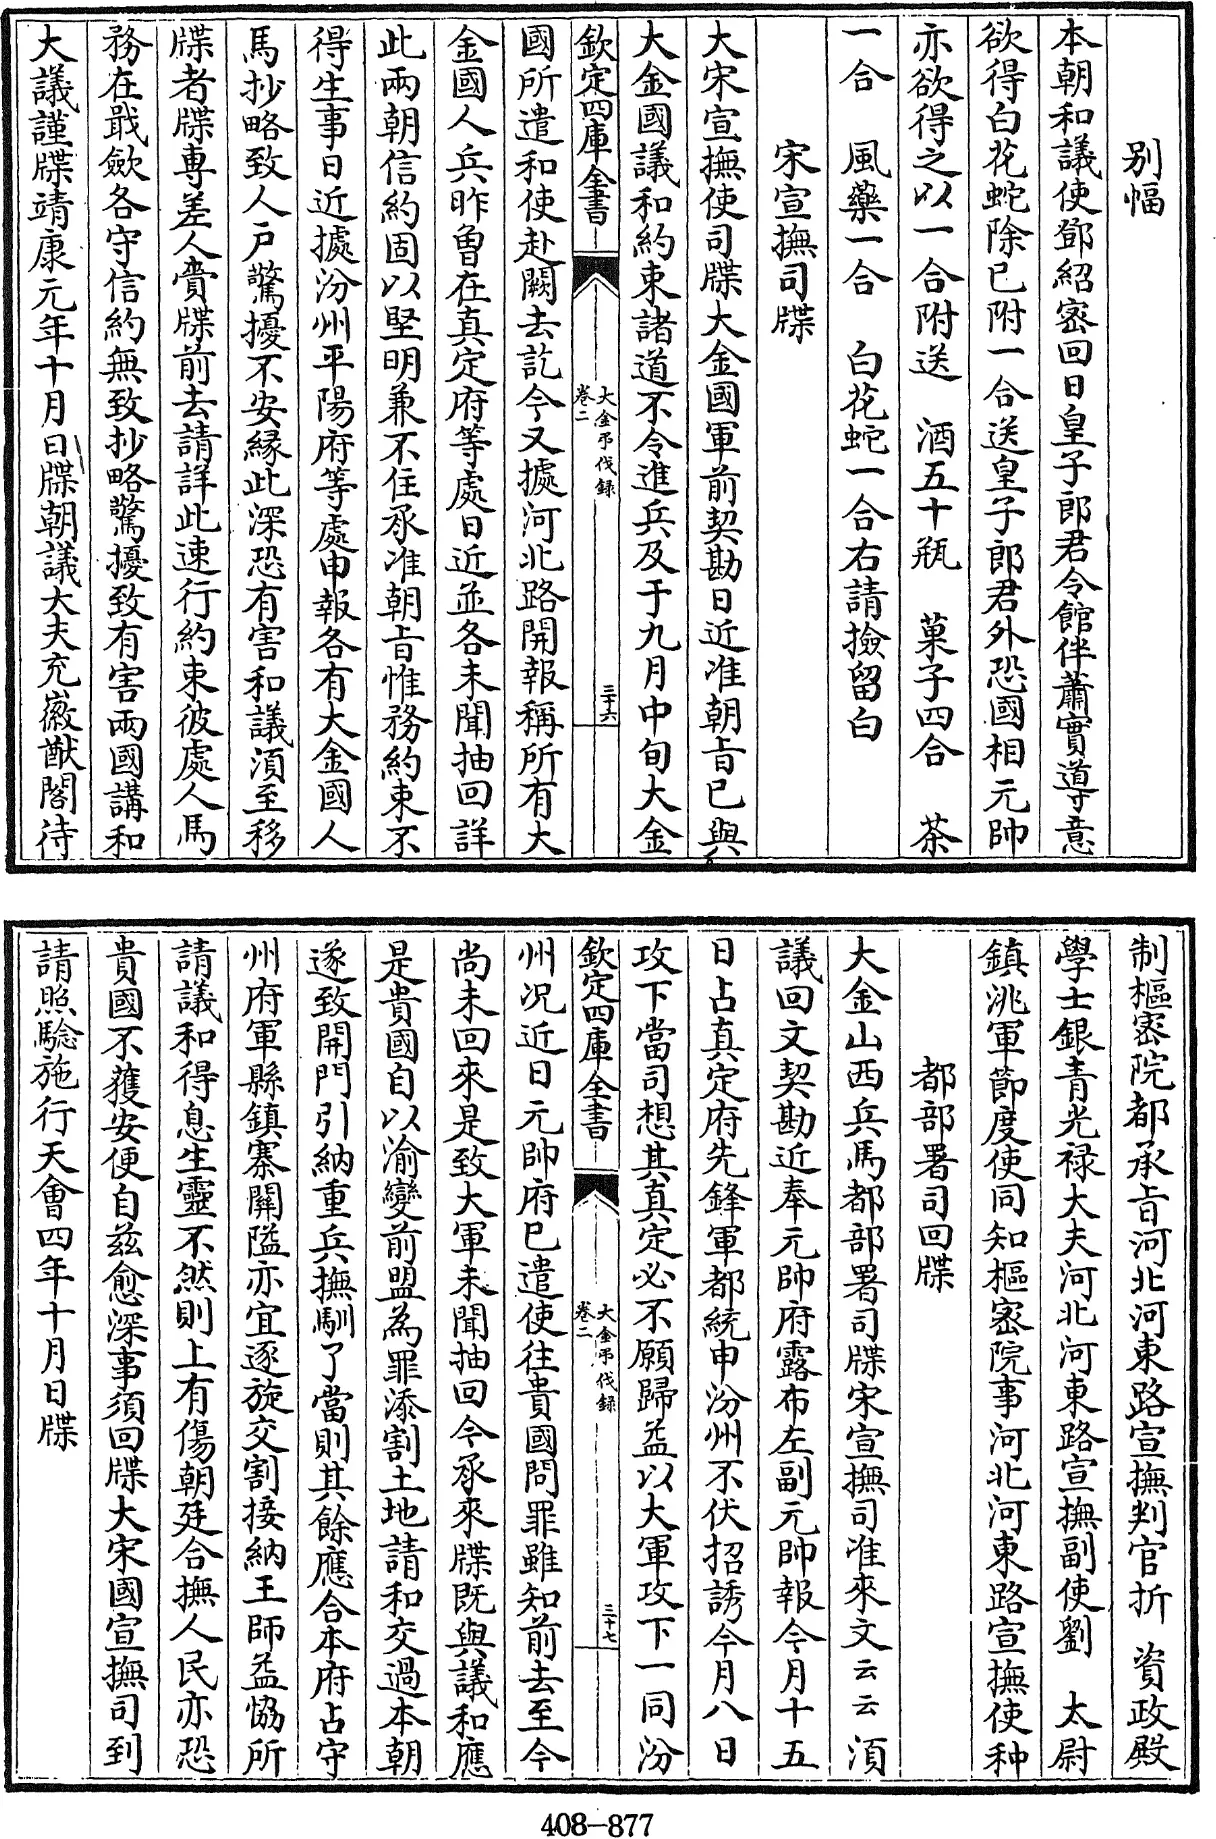 别幅
本朝和議使鄧紹密回日皇子郎君令館伴蕭實導意
欲得白花蛇除已附一合送皇子郎君外恐國相元帥
亦欲得之以一合附送　酒五十瓶　菓子四合　茶
一合　風藥一合　白花蛇一合右請撿留白
宋宣撫司牒
大宋宣撫使司牒大金國軍前契勘日近准朝㫖已與
大金國議和約束諸道不令進兵及于九月中旬大金
欽定四庫全書
大金弔伐録
卷二
三十六
國所遣和使赴闕去訖今又據河北路開報稱所有大
金國人兵昨曾在真定府等處日近並各未聞抽回詳
此兩朝信約固以堅明兼不住承准朝㫖惟務約束不
得生事日近據汾州平陽府等處申報各有大金國人
馬抄略致人户驚擾不安緣此深恐有害和議須至移
牒者牒專差人賫牒前去請詳此速行約束彼處人馬
務在戢斂各守信約無致抄略驚擾致有害兩國講和
大議謹牒靖康元年十月日牒朝議大夫充徽猷閣待
制樞密院都承㫖河北河東路宣撫判官折　資政殿
學士銀青光禄大夫河北河東路宣撫副使劉　太尉
鎮洮軍節度使同知樞密院事河北河東路宣撫使种
都部署司回牒
大金山西兵馬都部署司牒宋宣撫司准來文云云湏
議回文契勘近奉元帥府露布左副元帥報今月十五
日占真定府先鋒軍都統申汾州不伏招誘今月八日
攻下當司想其真定必不願歸盖以大軍攻下一同汾
欽定四庫全書
大金弔伐録
卷二
三十七
州况近日元帥府已遣使往貴國問罪雖知前去至今
尚未回來是致大軍未聞抽回今承來牒既與議和應
是貴國自以渝變前盟為罪添割土地請和交過本朝
遂致開門引納重兵撫馴了當則其餘應合本府占守
州府軍縣鎮寨關隘亦宜逐旋交割接納王師益恊所
請議和得息生靈不然則上有傷朝廷合撫人民亦恐
貴國不獲安便自兹愈深事須回牒大宋國宣撫司到
請照驗施行天會四年十月日牒
408-877